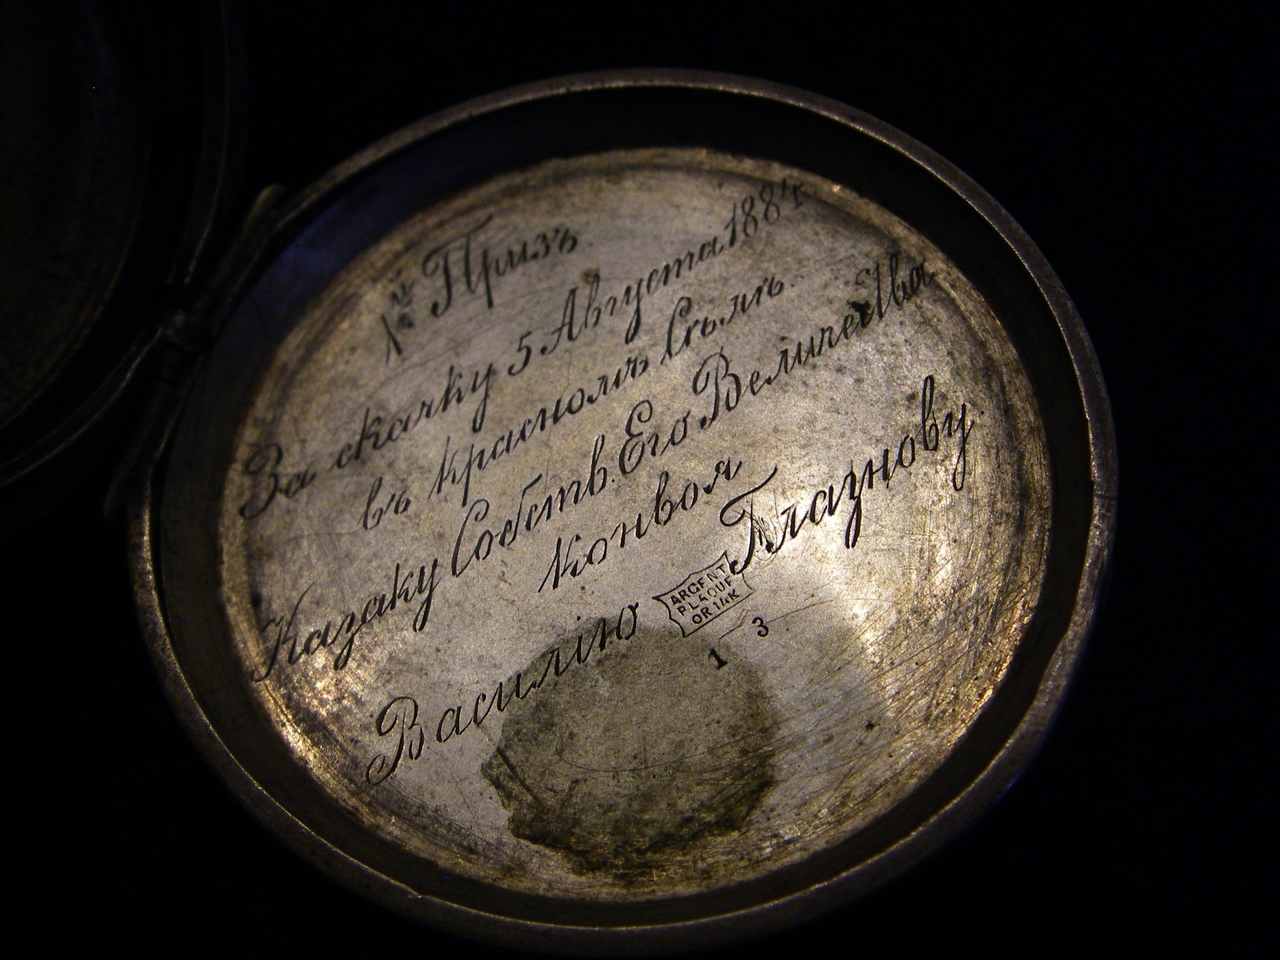 1й Призъ
За скачку 5 Августа 1884
въ красномъ Селѣ.
Казаку Собств. Его Величества
Конвоя
Василію Глазнову
ARGENT
PLAQUE
OR 14K
1 3